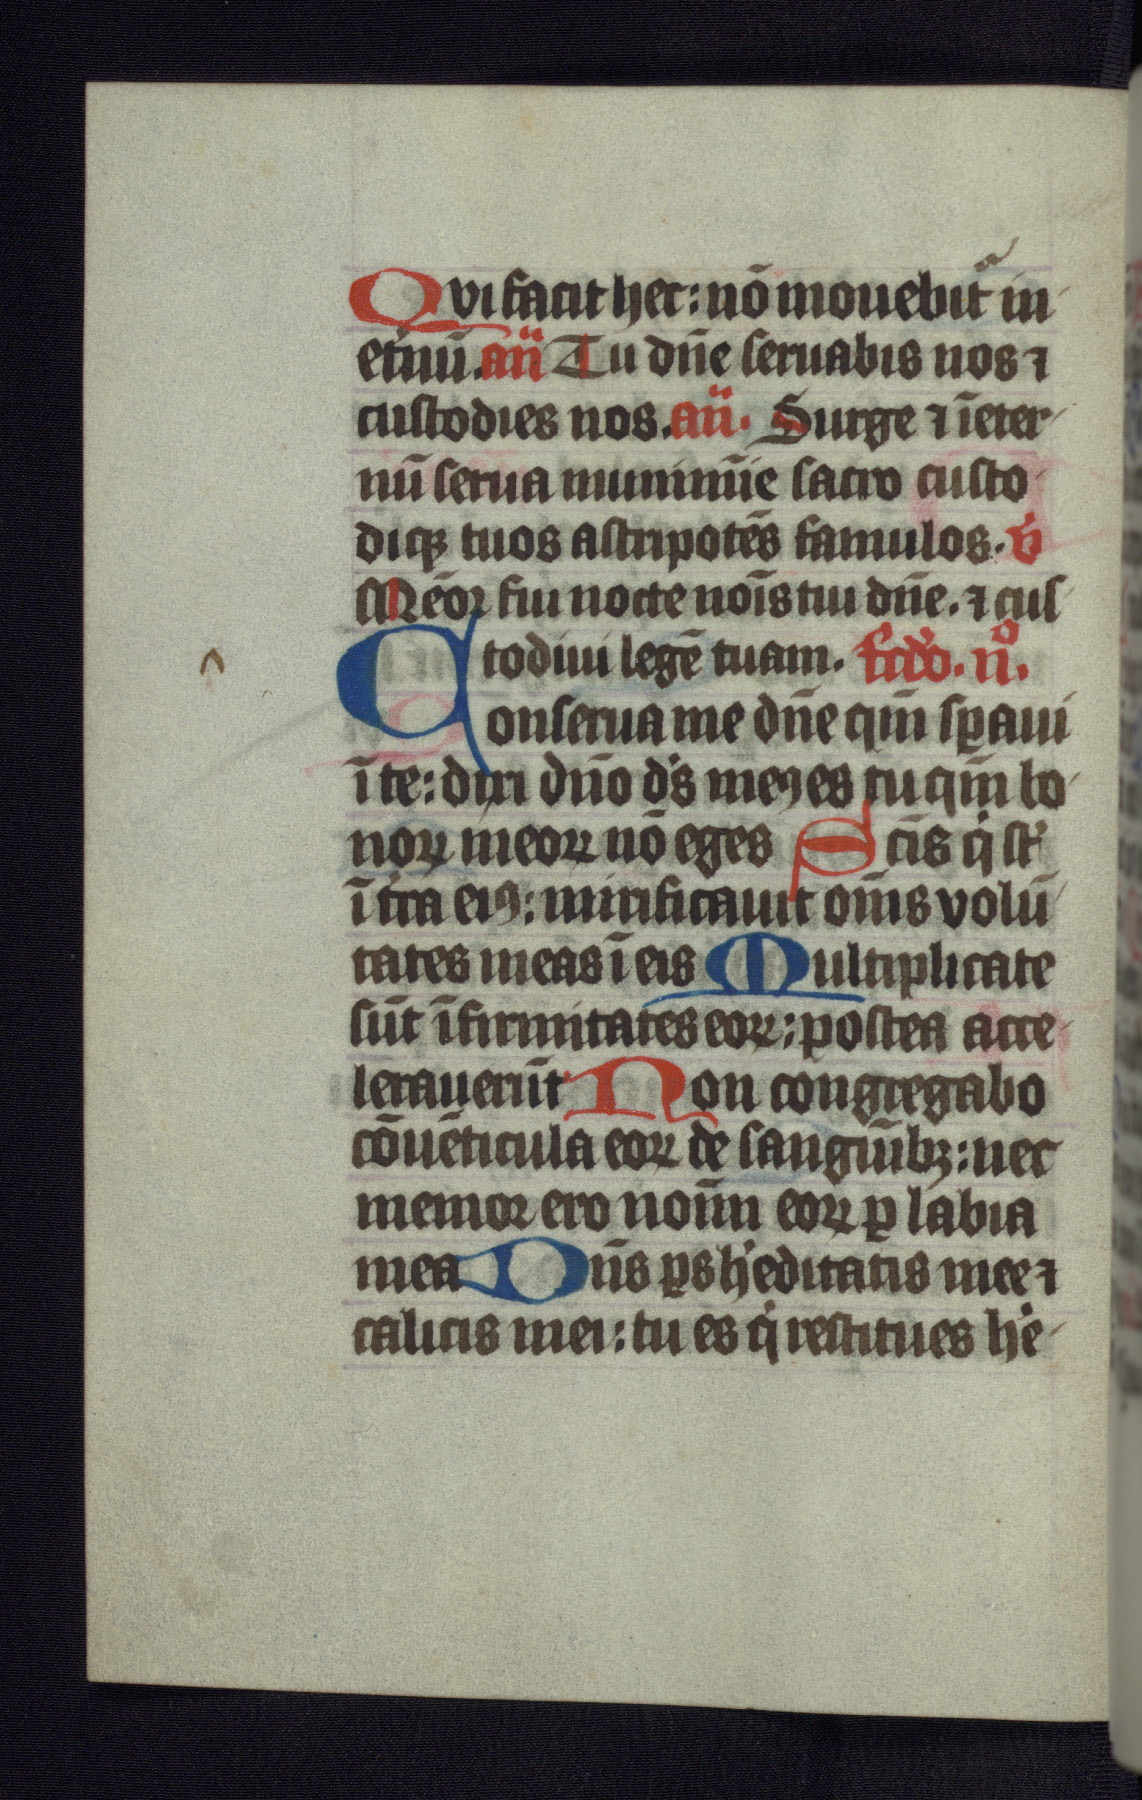 Qui facit hec: nō mouebit̄ᵃ in
et̄nū. an̄ Tu dn̄e seruabis nos ⁊
custodies nos. an̄. Surge ⁊ īeter
nū serua munimīe sacro custo
diqꝫ tuos astripotēs famulos. v̄
Mēor fui nocte nōīs tui dn̄e. ⁊ cus
todiui legē tuam. scd̄o. nº.
Conserua me dn̄e qm̄ sꝑaui
ī te: dixi dn̄o ds̄ meꝰ es tu qm̄ bo
noꝝ meoꝝ nō eges Sc̄is qͥ st̄
ī tr̄a eiꝰ: mirificauit om̄s volū
tates meas ī eis Multiplicate
sūt īfirmitates eoꝝ: postea acce
lerauerūt Non congregabo
cōuēticula eoꝝ de sanguībꝫ: nec
memor ero noīm eoꝝ ꝑ labia
mea Dn̄s ꝑs h̄editatis mee ⁊
calicis mei: tu es qͥ restitues h̄e